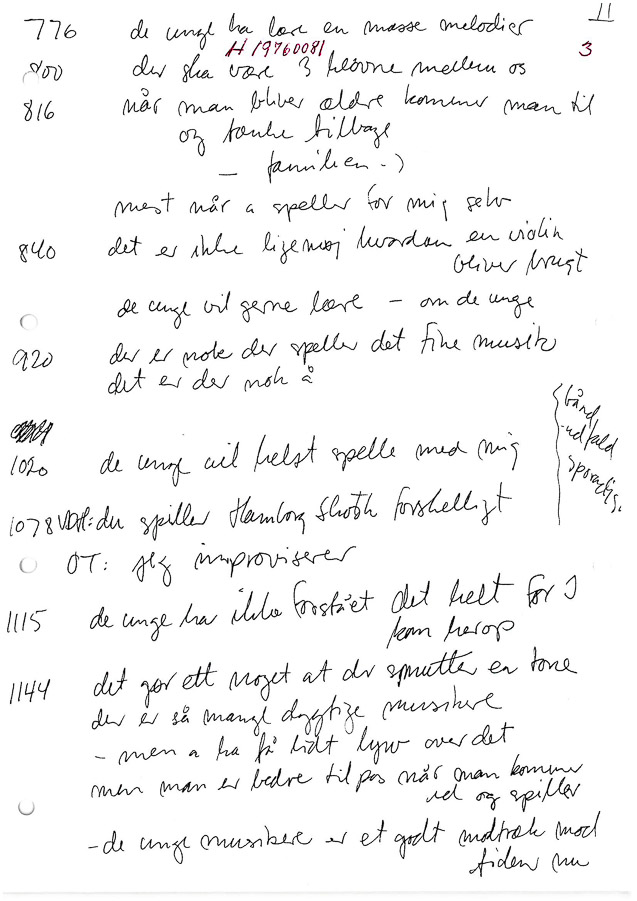 11
776 de unge ha lære en masse melodier
H 19760081 3
800 der ska være 3 hløvne mellem os
816 når man bliver ældre kommer man til
og tænke tilbage
— familien -)
mest når a speller for mig selv
840 det er ikke ligemøj hvordan en violin
bliver brugt
de unge vil gerne lære — om de unge
920 der er nok der speller det fine musik
det er der nok å
1020 de unge vil helst spelle med mig
bånd
udfald
sporadisk
1078 VDP: du spiller Hamborg Skotsk forskelligt
OT: jeg improviserer
1115 de unge ha ikke forstået det helt før I
kom herop
1144 det gør ett noget at der smutter en tone
der er så mange dygtige musikere
- men a ha få lidt lyw over det
men man er bedre tilpas når man kommer
ud og spiller
- de unge musikere er et godt modtræk mod
tiden nu